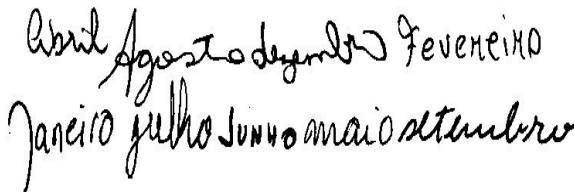 Abril Agosto dezembro Fevereiro
Janeiro julho JUNHO maio setembro